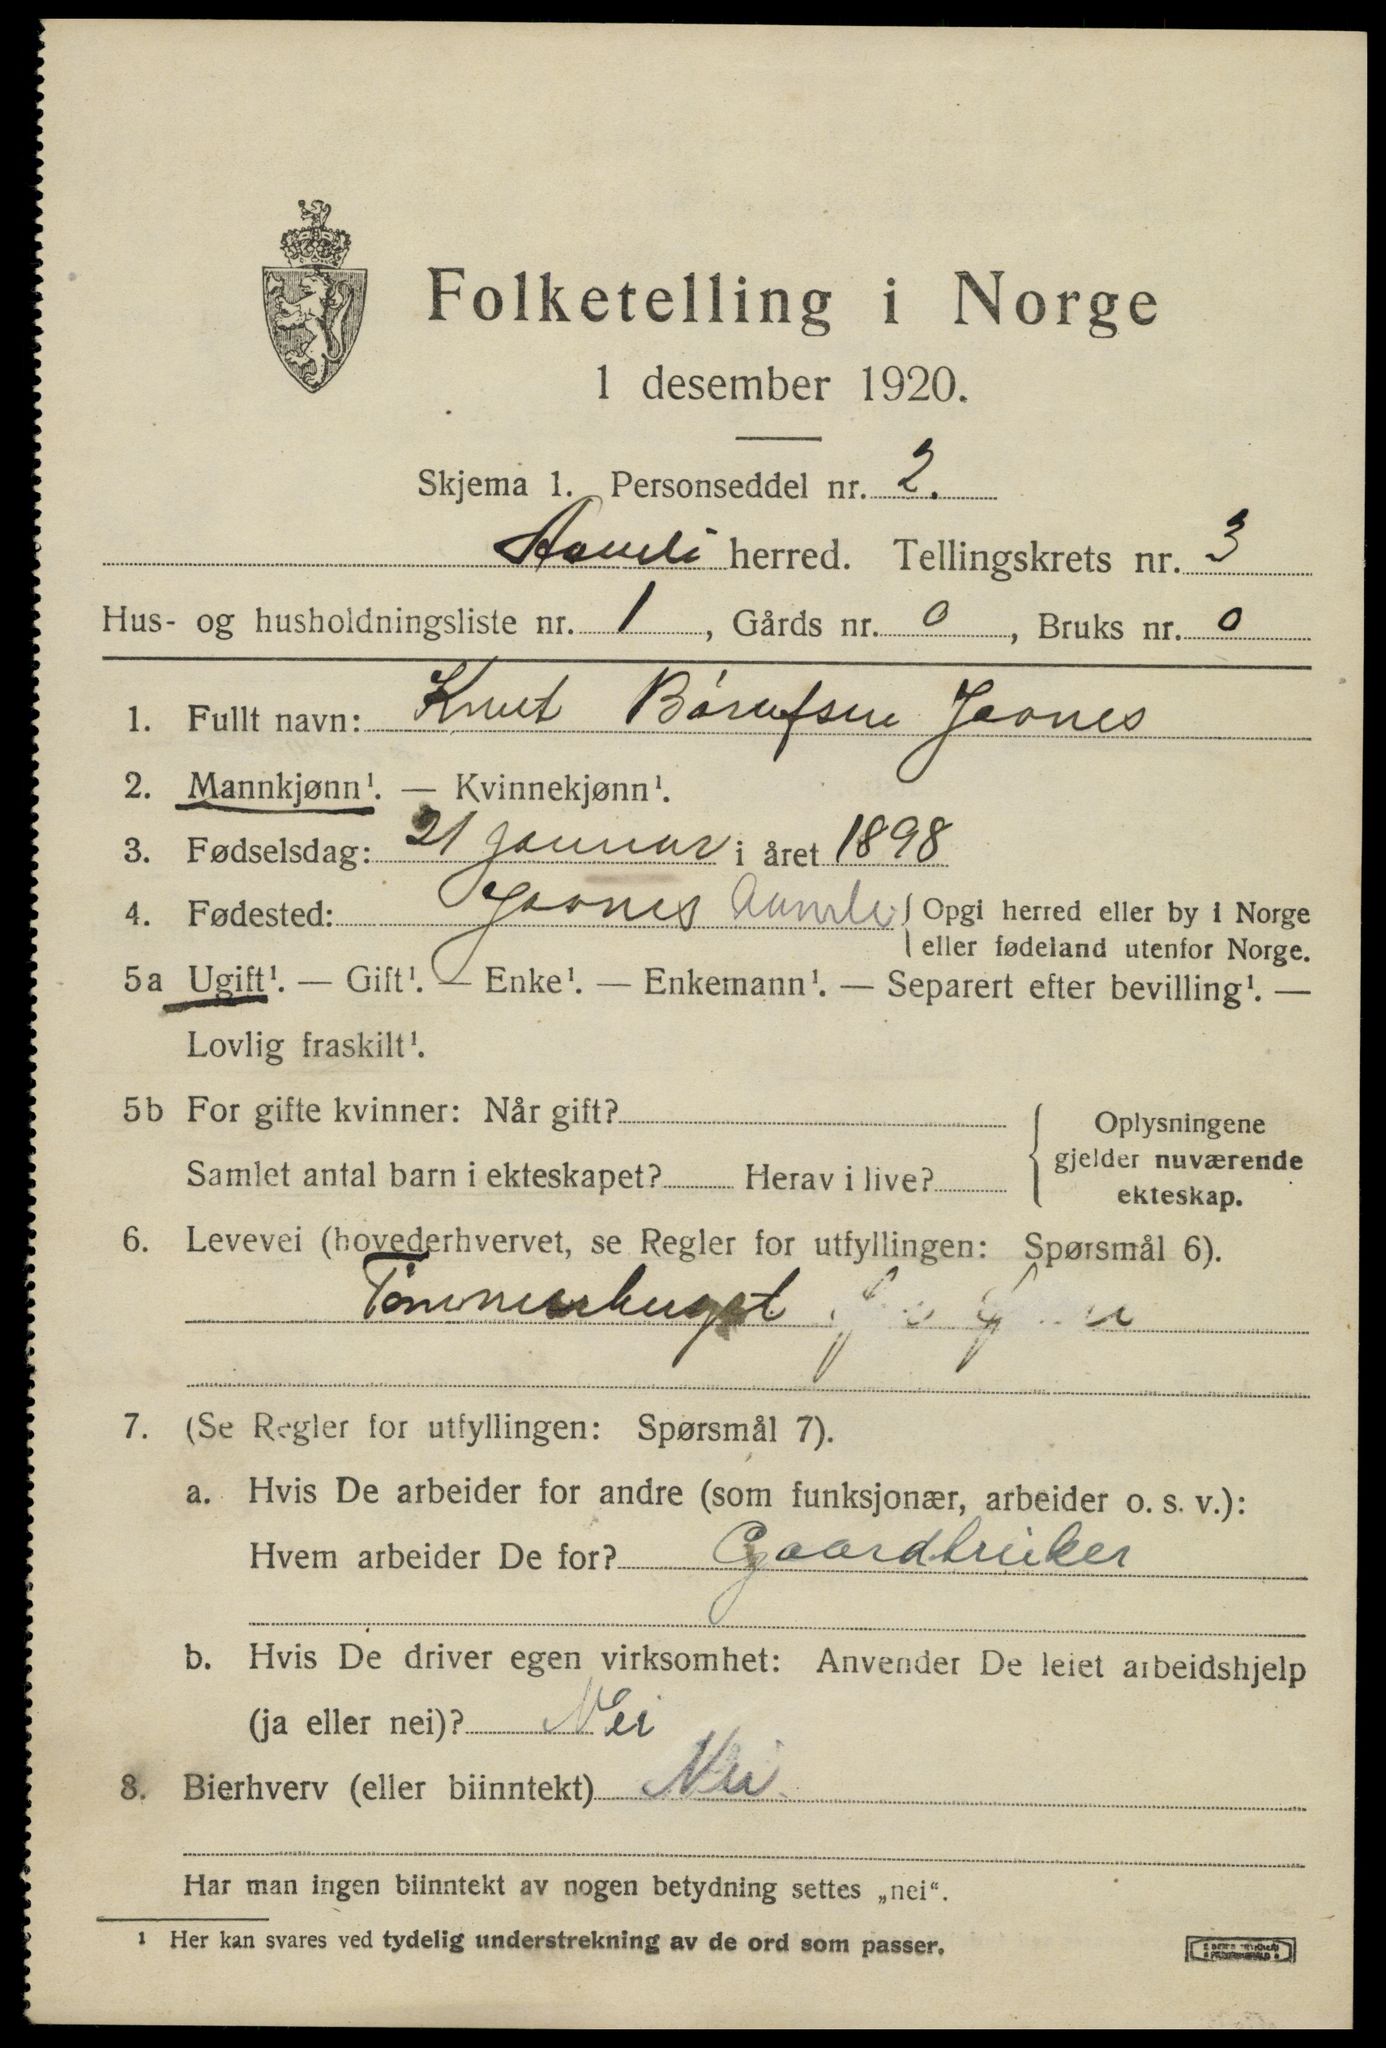 Folketelling i Norge
1 desember 1920.
Skjema 1. Personseddel nr. 2.
Aamli herred. Tellingskrets nr. 3
Hus- og husholdningsliste nr. 1, Gårds nr. 0, Bruks nr. 0
1. Fullt navn: Knut Børufsen Jaanes
2. Mannkjønn¹. — Kvinnekjønn¹.
3. Fødselsdag: 21 januar i året 1898
4. Fødested: Jaanes Aamli { Opgi herred eller by i Norge
eller fødeland utenfor Norge.
5a Ugift¹. — Gift¹. — Enke¹. — Enkemann¹. — Separert efter bevilling¹. —
Lovlig fraskilt¹.
5b For gifte kvinner: Når gift?
Samlet antal barn i ekteskapet? Herav i live?
Oplysningene
gjelder nuværende
ekteskap.
6. Levevei (hovederhvervet, se Regler for utfyllingen: Spørsmål 6).
Tømmerhugst
7. (Se Regler for utfyllingen: Spørsmål 7).
a. Hvis De arbeider for andre (som funksjonær, arbeider o. s. v.):
Hvem arbeider De for? Gaardbruker
b. Hvis De driver egen virksomhet: Anvender De leiet arbeidshjelp
(ja eller nei)? Nei
8. Bierhverv (eller biinntekt) Nei.
Har man ingen biinntekt av nogen betydning settes „nei“.
¹ Her kan svares ved tydelig understrekning av de ord som passer.